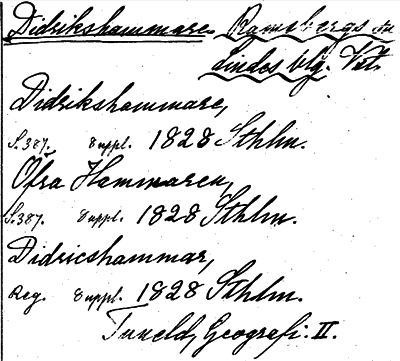 Didrikshammare. Ramsbergs sn
Lindes blg. Vstm.
Didrikshammare,
S. 387. Suppl. 1828 Sthlm.
Öfra Hammaren,
S. 387. Suppl. 1828 Sthlm.
Didricshammar,
Reg. Suppl. 1828 Sthlm.
Tuneld, Geografi. II.